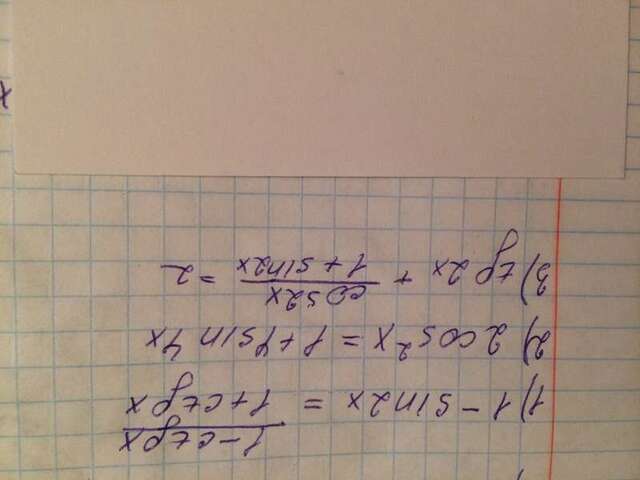 1) 1 - sin2x = (1 - ctgx)/(1 + ctgx)
2) 2cos²x = 1 + 4sin4x
3) tg2x + cos2x/(1 + sin2x) = 2
x